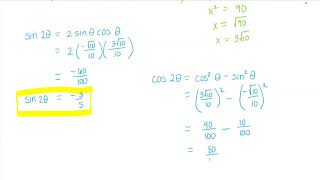 x² = 90
x = √90
x = 3√10
sin 2θ = 2 sin θ cos θ
= 2 (-√10/10)(3√10/10)
= -60/100
sin 2θ = -3/5
cos 2θ = cos² θ - sin² θ
= (3√10/10)² - (-√10/10)²
= 90/100 - 10/100
= 80/